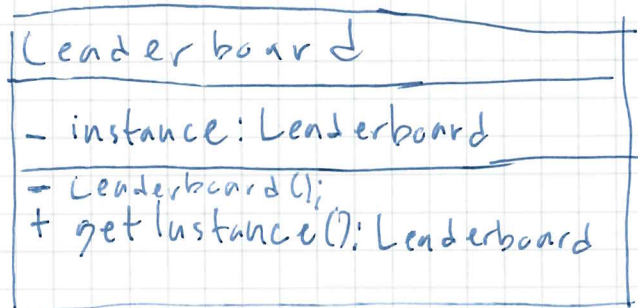 Leaderboard
- instance: Leaderboard
- Leaderboard();
+ getInstance(): Leaderboard